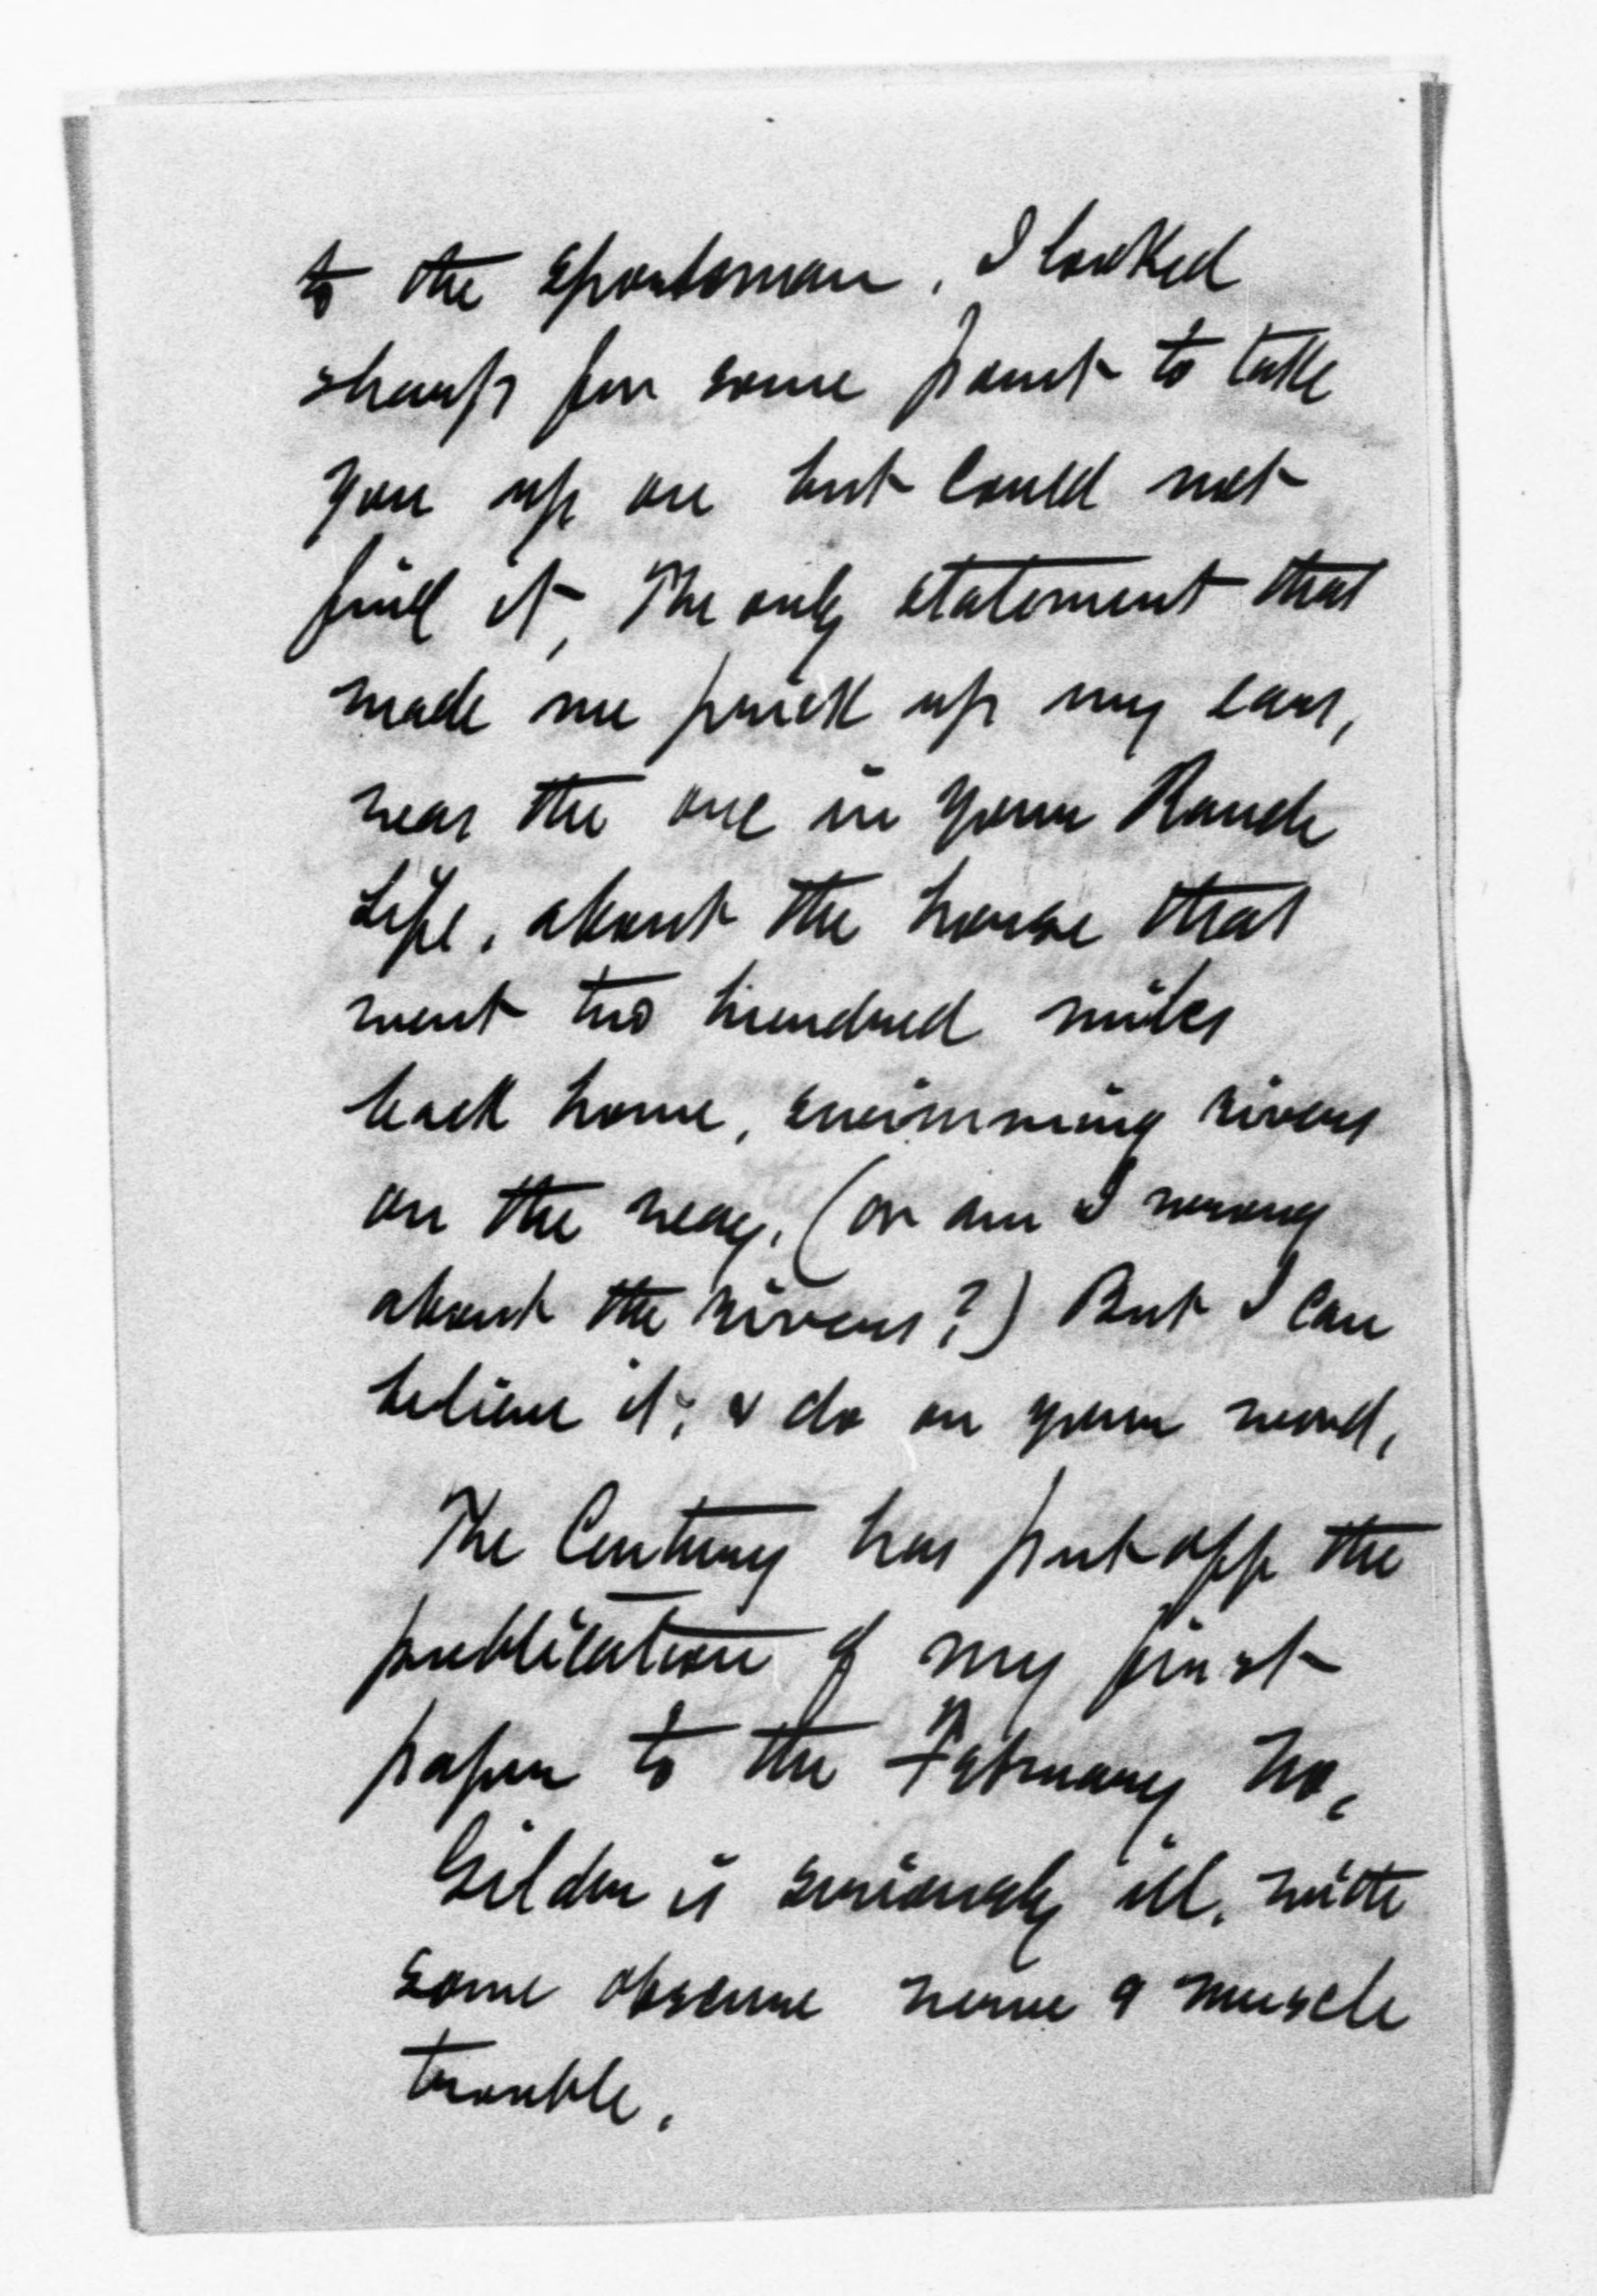 to the sportsman. I looked
sharp for some point to take
you up on but could not
find it. The only statement that
made me prick up my ears,
was the one in your Ranch
Life, about the horse that
went two hundred miles
back home, swimming rivers
on the way. (or am I wrong
about the rivers?) But I can
believe it; & do on your word,
The Century has put off the
publication of my first
paper to the February no,
Gilder is seriously ill. with
some obscure nerve & muscle
trouble.